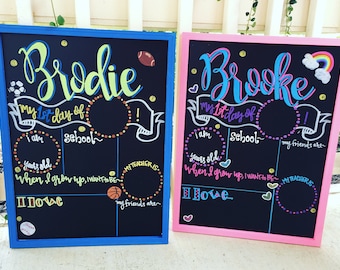 Brodie
my 1st day of !
I am
School~
years old!
my friends are~
MY TEACHER IS
When I grow up, I want to be
I love
my friends are~
Brooke
my 1st day of !
I am
School~
my friends are~
years old!
MY TEACHER IS
When I grow up, I want to be
I love
my friends are~